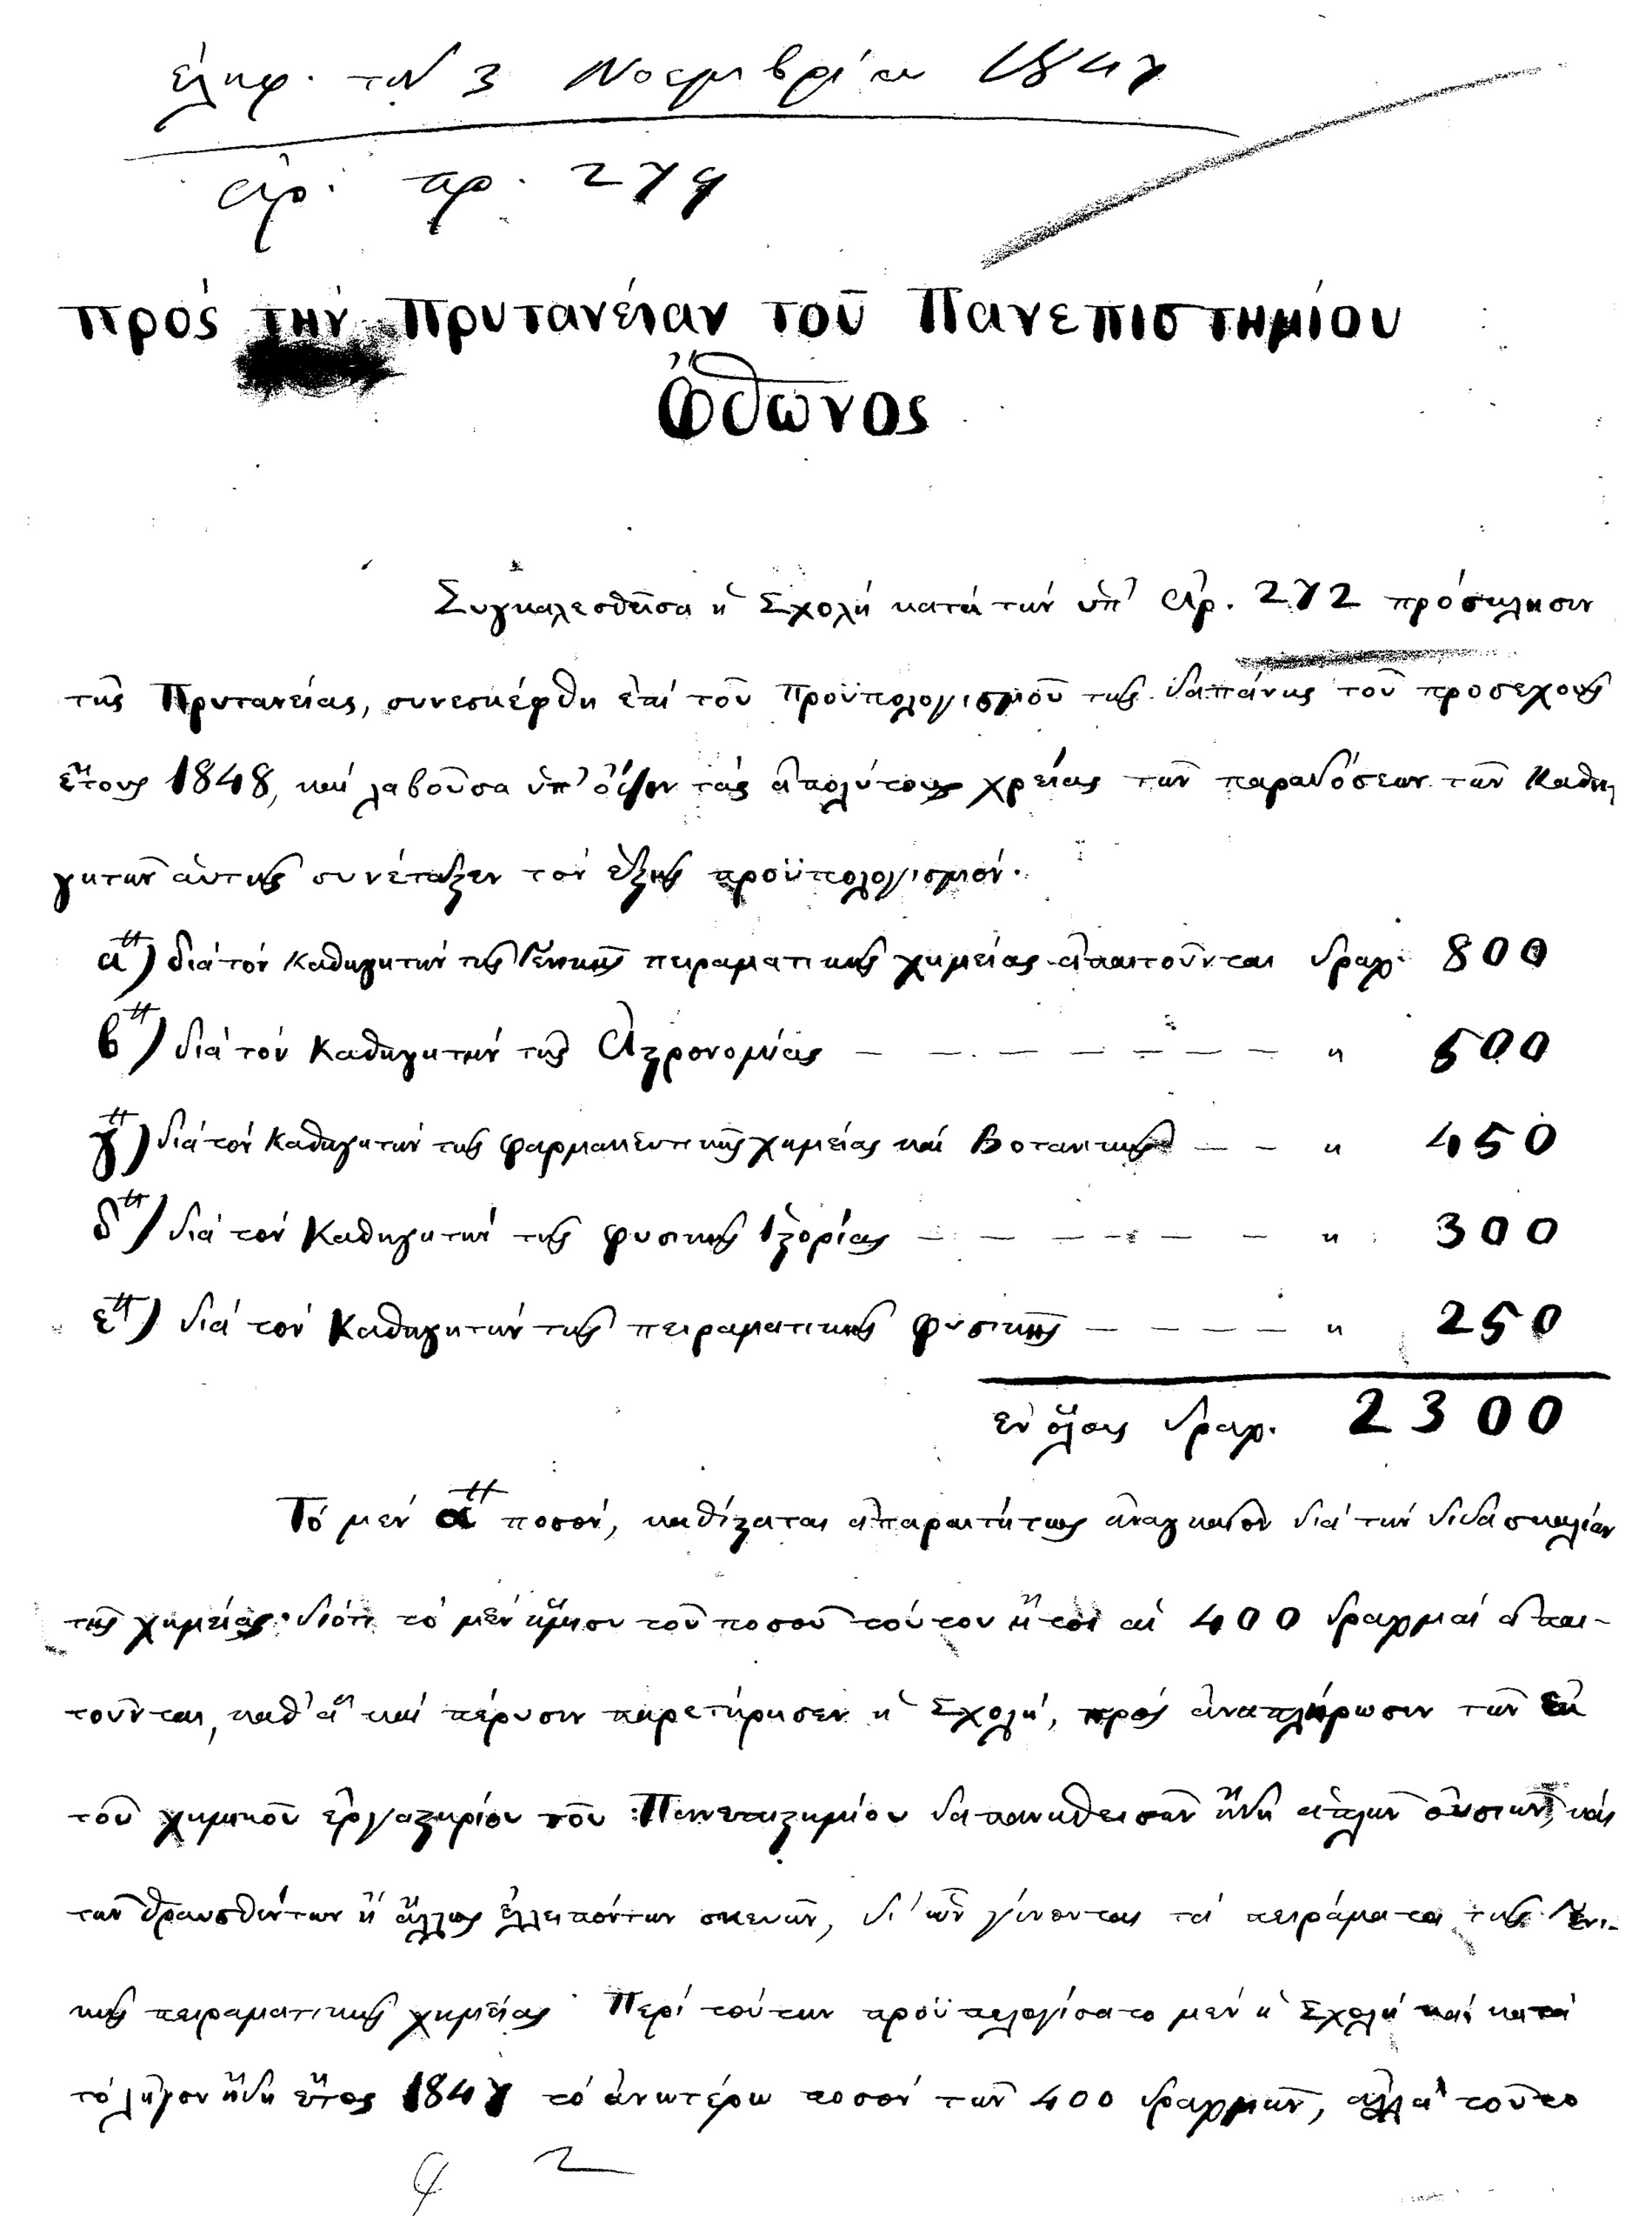 ἐλήφ. τὴν 3 Νοεμβρίου 1847
ἀρ. πρ. 279
Πρὸς τὴν Πρυτανείαν τοῦ Πανεπιστημίου
Ὄθωνος
Συγκαλεσθεῖσα ἡ Σχολὴ κατὰ τὴν ὑπ' Ἀρ. 272 πρόσκλησιν
τῆς Πρυτανείας, συνεσκέφθη ἐπὶ τοῦ προϋπολογισμοῦ τῆς δαπάνης τοῦ προσεχοῦς
ἔτους 1848, καὶ λαβοῦσα ὑπ' ὄψιν τὰς ἀπολύτους χρείας τῶν παραδόσεων τῶν Καθη-
γητῶν αὐτῆς συνέταξεν τὸν ἑξῆς προϋπολογισμόν.
α) διὰ τὸν Καθηγητὴν τῆς Γενικῆς πειραματικῆς χημείας ἀπαιτοῦνται δραχ. 800
β) διὰ τὸν Καθηγητὴν τῆς Ἀστρονομίας — — — — — — — " 500
γ) διὰ τὸν Καθηγητὴν τῆς φαρμακευτικῆς χημείας καὶ Βοτανικῆς — — " 450
δ) διὰ τὸν Καθηγητὴν τῆς φυσικῆς Ἱστορίας — — — — — — " 300
ε) διὰ τὸν Καθηγητὴν τῆς πειραματικῆς φυσικῆς — — — — " 250
ἐν ὅλοις δραχ. 2300
Τὸ μὲν α ποσὸν, καθίσταται ἀπαραιτήτως ἀναγκαῖον διὰ τὴν διδασκαλίαν
τῆς χημείας· διότι τὸ μὲν ἥμισυ τοῦ ποσοῦ τούτου ἤτοι αἱ 400 δραχμαὶ ἀπαι-
τοῦνται, καθ' ἃ καὶ πέρυσιν παρετήρησεν ἡ Σχολὴ, πρὸς ἀναπλήρωσιν τῶν ἐκ
τοῦ χημικοῦ ἐργαστηρίου τοῦ Πανεπιστημίου δαπανηθεισῶν ἤδη ἁπλῶν οὐσιῶν, καὶ
τῶν θραυσθέντων ἢ ἄλλως ἐλλειπόντων σκευῶν, δι' ὧν γίνονται τὰ πειράματα τῆς Γενι-
κῆς πειραματικῆς χημείας· Περὶ τούτων προϋπελογίσατο μὲν ἡ Σχολὴ καὶ κατὰ
τὸ λῆγον ἤδη ἔτος 1847 τὸ ἀνωτέρω ποσὸν τῶν 400 δραχμῶν, ἀλλὰ τοῦτο